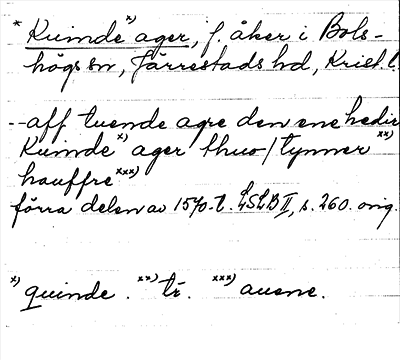 * Kuinde x) ager, f. åker i Bols-
högs sn, Järrestads hd, Krist. l.
--aff tuende agre den ene hedir
Kuinde x) ager thuo / tynner xx)
hauffre xxx)
förra delen av 1570-t. LSLB II, s. 260. orig.
x) quinde. xx) tr. xxx) auene.